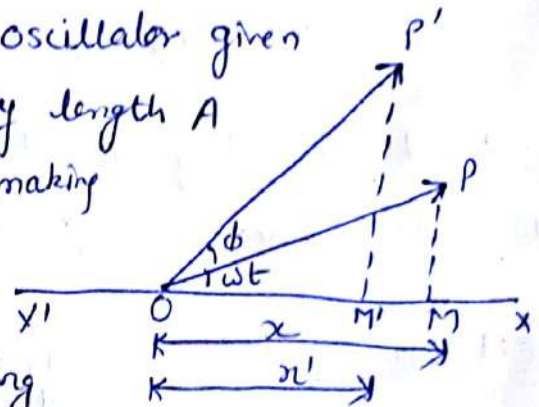 oscillator given
P'
y length A
making
P
ϕ
ωt
X' O M' M X
x
x'
ng